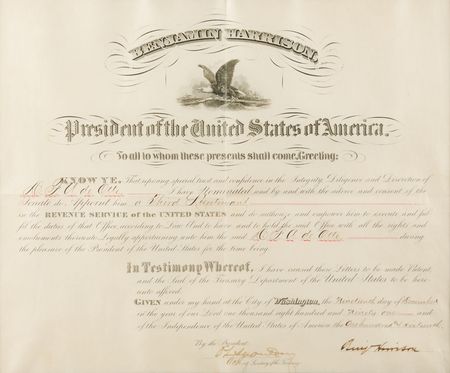 BENJAMIN HARRISON,
President of the United States of America.
To all to whom these presents shall come, Greeting:
KNOW YE, That reposing special trust and confidence in the Integrity, Diligence and Discretion of
I have Nominated and by and with the advice and consent of the
Senate do Appoint him a Third Lieutenant
in the REVENUE SERVICE of the UNITED STATES and do authorize and empower him to execute and ful
fil the duties of that Office according to Law And to have and to hold the said Office with all the rights and
emoluments thereunto legally appertaining unto him the said during
the pleasure of the President of the United States for the time being.
In Testimony Whereof, I have caused these Letters to be made Patent
and the Seal of the Treasury Department of the United States to be here
unto affixed.
GIVEN under my hand at the City of Washington, the Nineteenth day of
in the year of our Lord one thousand eight hundred and Ninety one and
of the Independence of the United States of America the One hundred & sixteenth
By the President Benj Harrison
Secretary of the Treasury